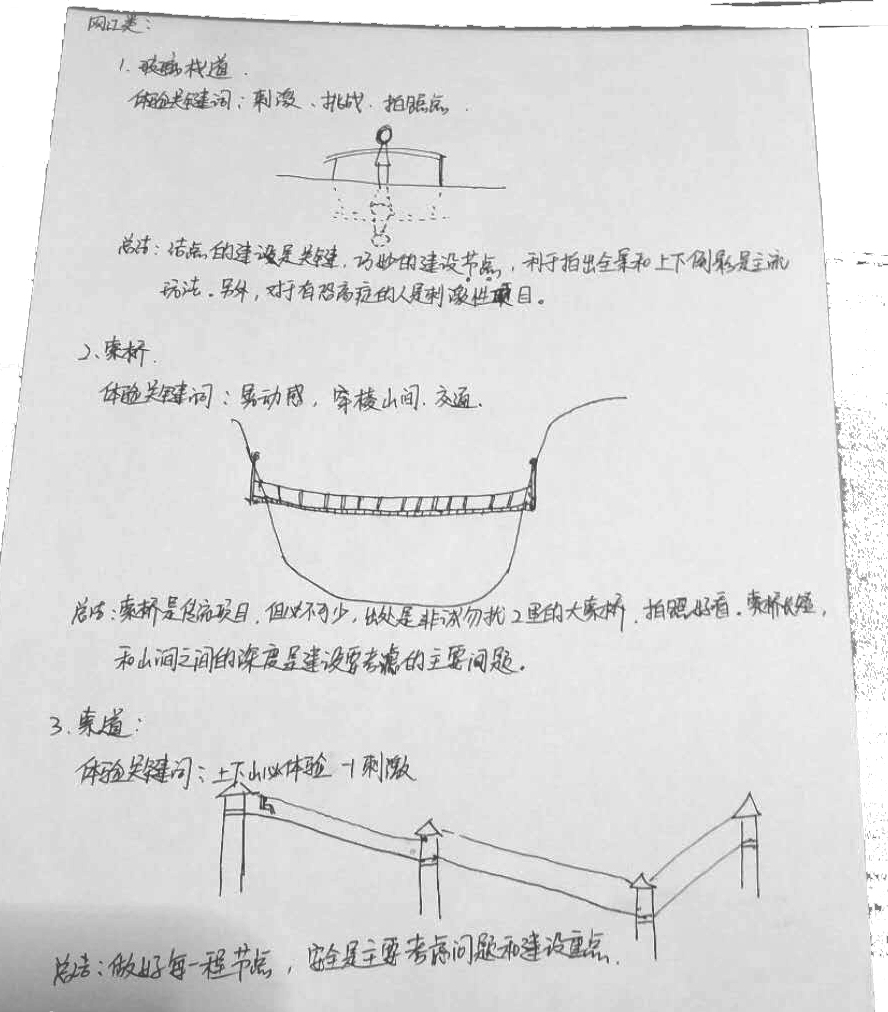 网红类：
1. 玻璃栈道.
体验关键词：刺激、挑战、拍照点.
总结：结点的建设是关键，巧妙的建设节点，利于拍出全景和上下倒影是主流
玩法。另外，对于有恐高症的人是刺激性项目。
2、索桥.
体验关键词：晃动感，穿梭山间、交通.
总结：索桥是传流项目，但必不可少，出处是非诚勿扰2里的大索桥，拍照好看。索桥长短，
和山涧之间的深度是建设要考虑的主要问题。
3. 索道：
体验关键词：上下山必体验 刺激
总结：做好每一程节点，安全是主要考虑问题和建设重点.